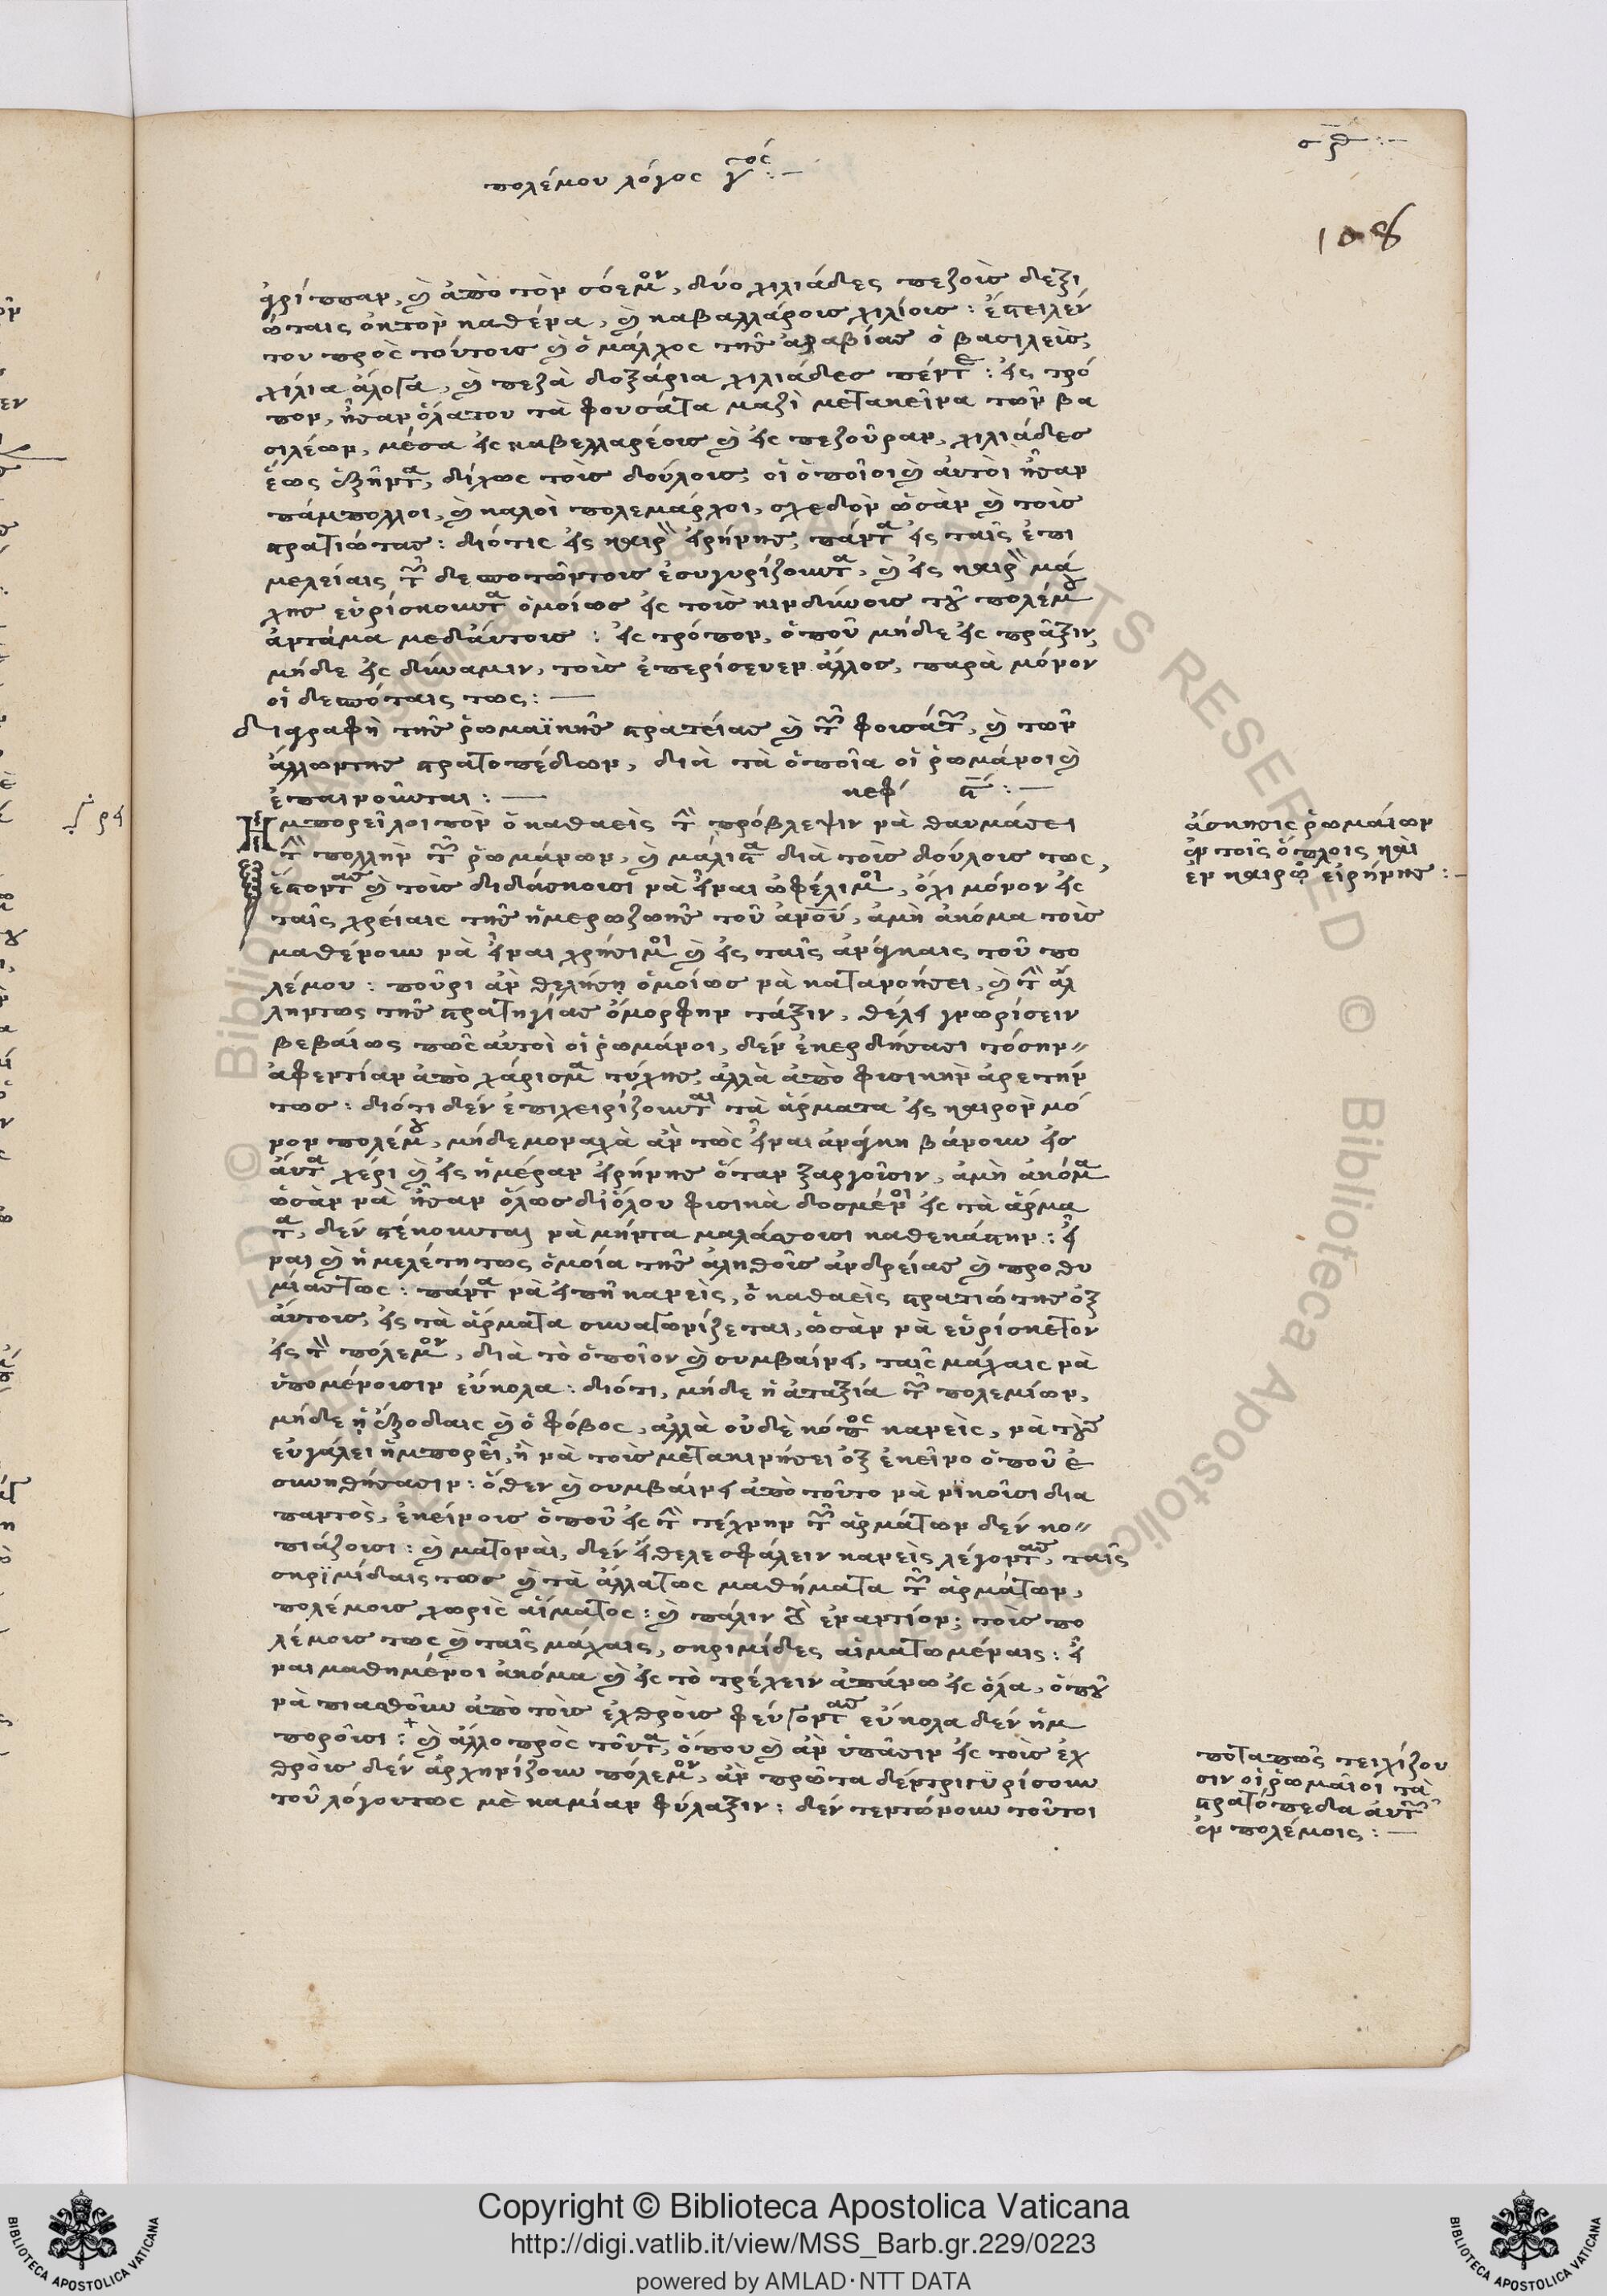 πολέμου λόγος γ^ος :—
σρδ :—
108
γρίππαν, καὶ ἀπὸ τὸν σόεμον, δύο χιλιάδες πεζοὺς δεξι
ώταις ὀκτὸν καθένα, καὶ καβαλλάρους χιλίους : ἔστειλέν
τον πρὸς τούτοις καὶ ὁ μάλχος τῆς ἀραβίας ὁ βασιλεὺς,
χίλια ἄλογα, καὶ πεζὰ δοξάρια χιλιάδες πέντε : εἰς τρό
πον, ἦσαν ὁλάπου τὰ φουσάτα μαζὶ μετακεῖνα τῶν βα
σιλέων, μέσα εἰς καβελλαρέους καὶ εἰς πεζούραν, χιλιάδες
ἕως ἑξῆντα, δίχως τοὺς δούλους, οἱ ὁποῖοι καὶ αὐτοὶ ἦσαν
πάμπολλοι, καὶ καλοὶ πολεμάρχοι, σχεδὸν ὡσὰν καὶ τοὺς
στρατιώτας : διότις εἰς καιρὸν εἰρήνης, πάντα εἰς ταῖς ἐπι
μελείαις τῶν δεσποτῶντους ἐσυγυρίζουντα, καὶ εἰς καιρὸν μά
χης εὑρίσκουντα ὁμοίως εἰς τοὺς κινδύνους τοῦ πολέμου
ἀντάμα μεδαύτους : εἰς τρόπον, ὁποῦ μήδε εἰς πρᾶξιν,
μήδε εἰς δύναμιν, τοὺς ἐπερίσευεν ἄλλος, παρὰ μόνον
οἱ δεσπόταις τως : —
διγραφὴ τῆς ῥωμαϊκῆς στρατείας καὶ τῶν φουσάτων, καὶ τῶν
ἄλλωντης στρατοπέδων, διὰ τὰ ὁποῖα οἱ ῥωμάνοι καὶ
ἐπαινοῦνται : — κεφ στ : —
Ημπορεῖ λοιπὸν ὁ καθαεὶς τὴν πρόβλεψιν νὰ θαυμάσει
τὴν πολλὴν τῶν ῥωμάνων, καὶ μάλιστα διὰ τοὺς δούλους τως,
ἔστοντας καὶ τοὺς διδάσκουσι νὰ εἶναι ὠφέλιμοι, ὄχι μόνον εἰς
ταῖς χρείαις τῆς ἡμεροζωῆς τοῦ ἀνοῦ, ἀμὴ ἀκόμα τοὺς
μαθένουν νὰ εἶναι χρήσιμοι καὶ εἰς ταῖς ἀνάγκαις τοῦ πο
λέμου : πούρι ἂν θελήση ὁμοίως νὰ κατανοήσει, καὶ τὴν ἄλ
ληντως τῆς στρατηγίας ὄμορφην τάξιν, θέλει γνωρίσειν
βεβαίως πῶς αὐτοὶ οἱ ῥωμάνοι, δὲν ἐκερδήσασι τόσην
ἀφεντίαν ἀπὸ χάρισμα τύχης, ἀλλὰ ἀπὸ φισικὴν ἀρετήν
τως : διότι δὲν ἐπιχειρίζουνται τὰ ἅρματα εἰς καιρὸν μό
νον πολέμου, μήδε μοναχὰ ἂν τὼς εἶναι ἀνάγκη βάνουν εἰς
αὐτὰ χέρι καὶ εἰς ἡμέραν εἰρήνης ὅταν ξαργοῦσιν, ἀμὴ ἀκόμα
ὡσὰν νὰ ἦσαν ὅλως διόλου φισικὰ δοσμένοι εἰς τὰ ἅρμα
τα, δὲν στέκουνται νὰ μήντα μαλάσσουσι καθεκάστην : εἶ
ναι καὶ ἡ μελέτη τως ὁμοία τῆς ἀληθοὺς ἀνδρείας καὶ προθυ
μίας τως : πάντα νὰ εἰπῆ κανεὶς, ὁ καθαεὶς στρατιώτης ὀξ
αὐτους, εἰς τὰ ἅρματα συνατωρίζεται, ὡσὰν νὰ εὑρίσκετον
εἰς τὸν πόλεμον, διὰ τὸ ὁποῖον καὶ συμβαίνει, ταῖς μάχαις νὰ
ὑπομένουσιν εὔκολα : διότι, μήδε ἡ ἀταξία τῶν πολεμίων,
μήδε ἡ ἔξοδαις καὶ ὁ φόβος, ἀλλὰ οὐδὲ κόπος κανεὶς, νὰ τοὺς
εὐγάλει ἡμπορεῖ, ἢ νὰ τοὺς μετακινήσει ὀξ ἐκεῖνο ὁποῦ ἐ
συνηθήσασιν : ὅθεν καὶ συμβαίνει ἀπὸ τοῦτο νὰ νικοῦσι δια
παντὸς, ἐκείνους ὁποῦ εἰς τὴν τέχνην τῶν ἁρμάτων δὲν κο
πιάζουσι : καὶ ματοναι, δὲν εἴθελε σφάλειν κανεὶς λέγοντας, ταῖς
σκριμίδαις τως καὶ τὰ ἄλλατως μαθήματα τῶν ἁρμάτων,
πολέμους χωρὶς αἵματος : καὶ πάλιν τὸ ἐναντίον ; τοὺς πο
λέμους τως καὶ ταῖς μάχαις, σκριμίδες αἱματωμέναις : εἶ
ναι μαθημένοι ἀκόμα καὶ εἰς τὸ τρέχειν ἀπάνω εἰς ὅλα, ὁποῦ
νὰ πιασθοῦν ἀπὸ τοὺς ἐχθροὺς φεύγοντας εὔκολα δὲν ἡμ
ποροῦσι : + καὶ ἄλλο πρὸς τοῦτα, ὅπου καὶ ἂν ὑπᾶσιν εἰς τοὺς ἐχ
θροὺς δὲν ἀρχηνίζουν πόλεμον, ἂν πρῶτα δὲντριγυρίσουν
τοῦ λόγουτως μὲ καμίαν φύλαξιν : δὲν τεντώνουν τοῦτοι
ἄσκησις ῥωμαίων
ἐν τοῖς ὅπλοις καὶ
ἐν καιρῷ εἰρήνης :—
ποταπῶς τειχίζου
σιν οἱ ῥωμαῖοι τὰ
στρατόπεδα αὐτῶν
ἐν πολέμοις : —
Copyright © Biblioteca Apostolica Vaticana
http://digi.vatlib.it/view/MSS_Barb.gr.229/0223
powered by AMLAD·NTT DATA
BIBLIOTECA APOSTOLICA VATICANA
BIBLIOTECA APOSTOLICA VATICANA